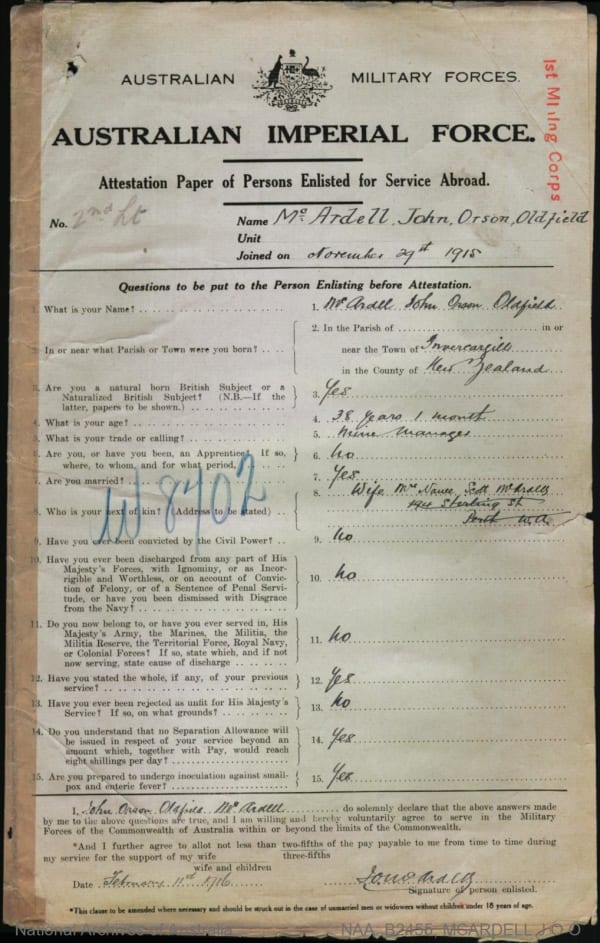 AUSTRALIAN MILITARY FORCES.
AUSTRALIAN IMPERIAL FORCE.
1st Mining Corps
Attestation Paper of Persons Enlisted for Service Abroad.
No. 2nd Lt Name Mc Ardell, John, Orson, Oldfield
Unit
Joined on November 29th 1915
Questions to be put to the Person Enlisting before Attestation.
1. What is your Name? 1. Mc Ardell John Orson Oldfield
2. In or near what Parish or Town were you born? 2. In the Parish of in or
near the Town of Invercargill
in the County of New Zealand
3. Are you a natural born British Subject or a
Naturalized British Subject? (N.B.—If the
latter, papers to be shown.) 3. Yes
4. What is your age? 4. 38 years 1 month
5. What is your trade or calling? 5. Mine Manager
6. Are you, or have you been, an Apprentice? If so,
where, to whom, and for what period, 6. No
7. Are you married? 7. Yes
8. Who is your next of kin? (Address to be stated) 8. Wife Mrs Scott McArdell
194 Stirling St
Perth W.A.
W8702
9. Have you ever been convicted by the Civil Power? 9. No
10. Have you ever been discharged from any part of His
Majesty's Forces, with Ignominy, or as Incor-
rigible and Worthless, or on account of Convic-
tion of Felony, or of a Sentence of Penal Servi-
tude, or have you been dismissed with Disgrace
from the Navy? 10. No
11. Do you now belong to, or have you ever served in, His
Majesty's Army, the Marines, the Militia, the
Militia Reserve, the Territorial Force, Royal Navy,
or Colonial Forces? If so, state which, and if not
now serving, state cause of discharge 11. No
12. Have you stated the whole, if any, of your previous
service? 12. Yes
13. Have you ever been rejected as unfit for His Majesty's
Service? If so, on what grounds? 13. No
14. Do you understand that no Separation Allowance will
be issued in respect of your service beyond an
amount which, together with Pay, would reach
eight shillings per day? 14. Yes
15. Are you prepared to undergo inoculation against small-
pox and enteric fever? 15. Yes
I, John Orson Oldfield McArdell do solemnly declare that the above answers made
by me to the above questions are true, and I am willing and hereby voluntarily agree to serve in the Military
Forces of the Commonwealth of Australia within or beyond the limits of the Commonwealth.
*And I further agree to allot not less than two-fifths of the pay payable to me from time to time during
three-fifths
my service for the support of my wife
wife and children
Date February 11th 1916
Signature of person enlisted.
*This clause to be amended where necessary and should be struck out in the case of unmarried men or widowers without children under 18 years of age.
National Archives of Australia NAA: B2455, MCARDELL J O O